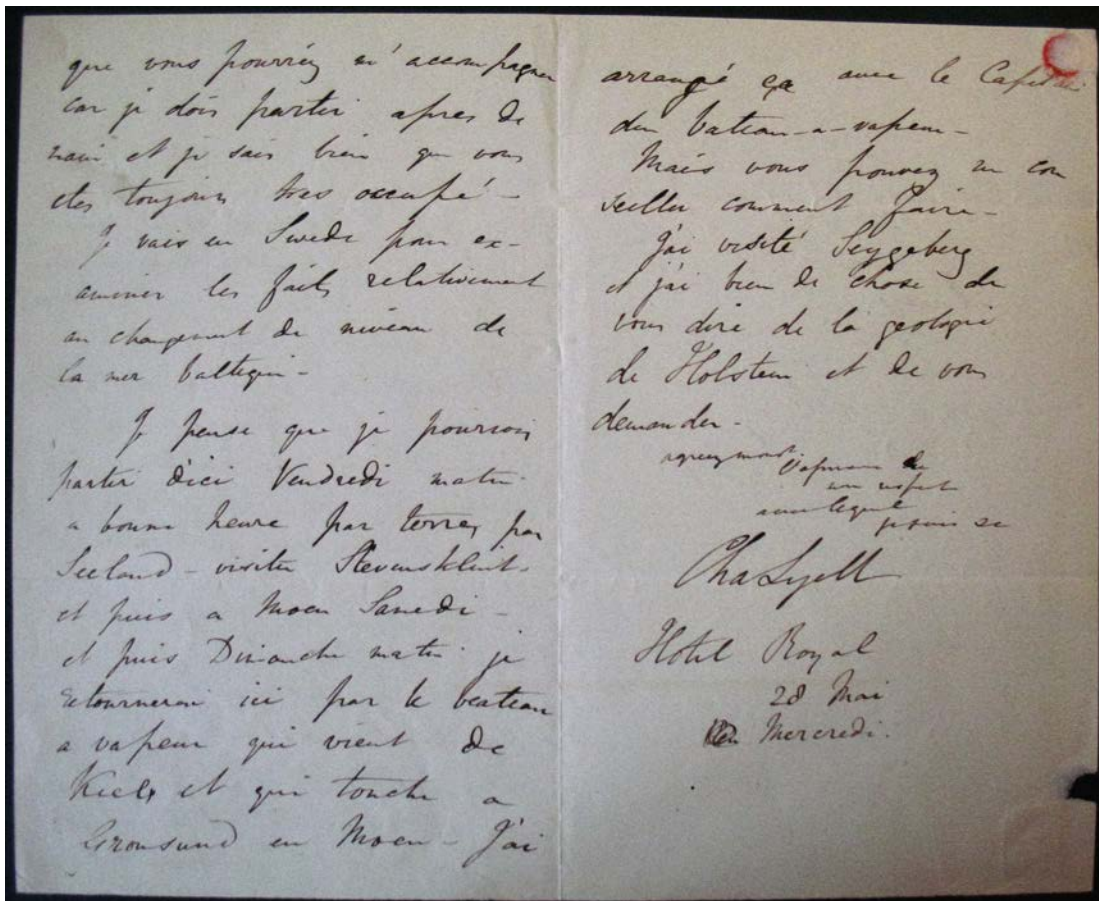 que vous pourriéz m'accompagner
car je dois partir apres de
main et je sais bien que vous
etes toujours tres occupé -
Je vais en Swede pour ex-
aminer les faits relativement
au changement de niveau de
la mer Baltequi -
Je pense que je pourrois
partir d'ici Vendredi matin
a bonne heure par terre, par
Seeland - visiter Stevensklint -
et puis a Moen Samedi -
et puis Dimanche matin je
retournerai ici par le beateau
a vapeur qui vient de
Kiel et qui touche a
Gronsund en Moen - J'ai
arrangé ça avec le Capitain
du bateau-a-vapeur -
Mais vous pouvez m con
seiller comment faire -
J'ai visité Seggeberg
et j'ai bien de chose de
vous dire de la geologie
de Holstein et de vous
demander -
du
respect
avec lequel
je suis
Cha Lyell
Hotel Royal
28 Mai
Mercredi.